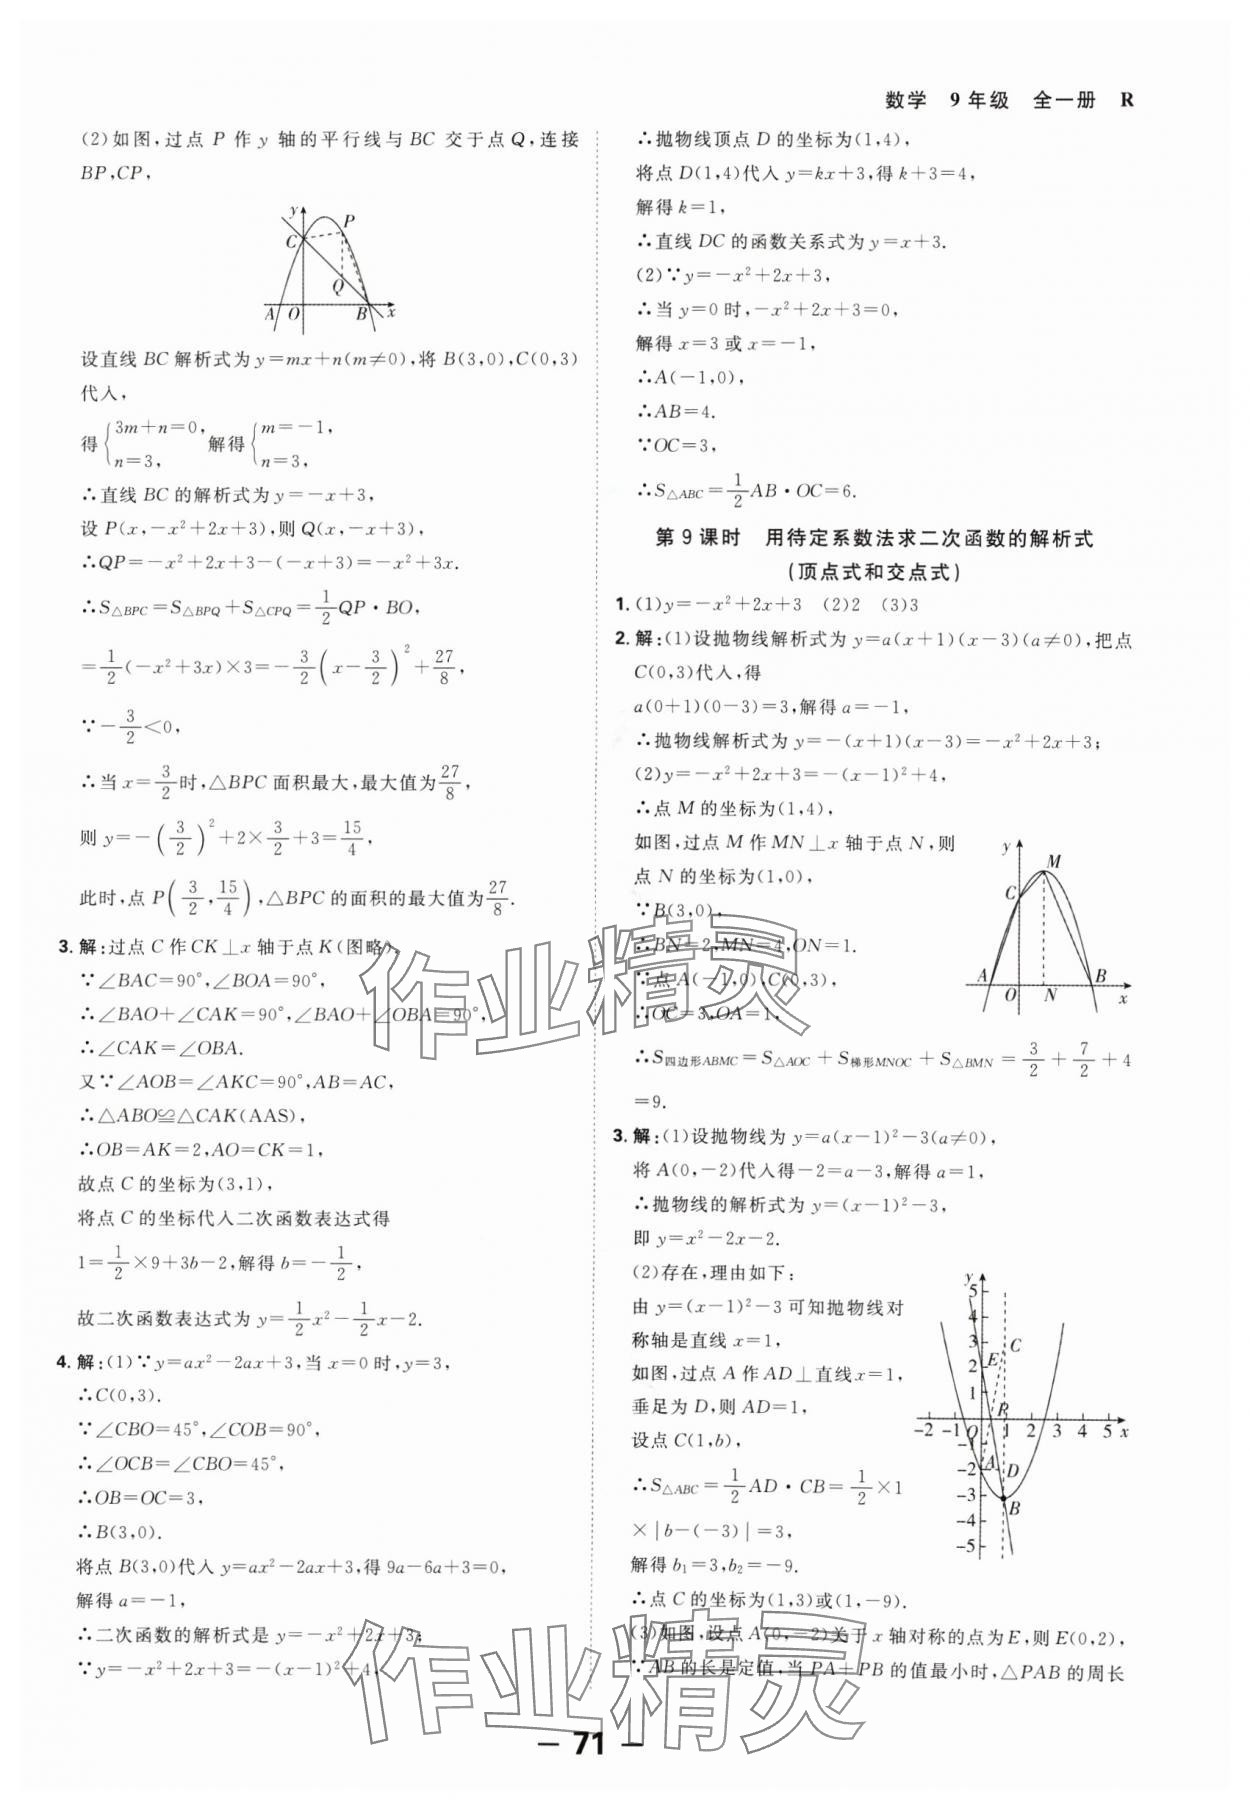 数学 9年级 全一册 R
(2)如图,过点 P 作 y 轴的平行线与 BC 交于点 Q,连接
BP,CP,
y
P
C
Q
A O B x
设直线 BC 解析式为 y=mx+n(m≠0),将 B(3,0),C(0,3)
代入,
得{3m+n=0, n=3, 解得{m=-1, n=3,
∴直线 BC 的解析式为 y=-x+3,
设 P(x,-x²+2x+3),则 Q(x,-x+3),
∴QP=-x²+2x+3-(-x+3)=-x²+3x.
∴S△BPC=S△BPQ+S△CPQ=1/2 QP·BO,
=1/2(-x²+3x)×3=-3/2(x-3/2)²+27/8,
∵-3/2<0,
∴当 x=3/2时,△BPC 面积最大,最大值为27/8,
则 y=-(3/2)²+2×3/2+3=15/4,
此时,点 P(3/2,15/4),△BPC 的面积的最大值为27/8.
3. 解:过点 C 作 CK⊥x 轴于点 K(图略),
∵∠BAC=90°,∠BOA=90°,
∴∠BAO+∠CAK=90°,∠BAO+∠OBA=90°,
∴∠CAK=∠OBA.
又∵∠AOB=∠AKC=90°,AB=AC,
∴△ABO≌△CAK(AAS),
∴OB=AK=2,AO=CK=1,
故点 C 的坐标为(3,1),
将点 C 的坐标代入二次函数表达式得
1=1/2×9+3b-2,解得 b=-1/2,
故二次函数表达式为 y=1/2x²-1/2x-2.
4. 解:(1)∵y=ax²-2ax+3,当 x=0 时,y=3,
∴C(0,3).
∵∠CBO=45°,∠COB=90°,
∴∠OCB=∠CBO=45°,
∴OB=OC=3,
∴B(3,0).
将点 B(3,0)代入 y=ax²-2ax+3,得 9a-6a+3=0,
解得 a=-1,
∴二次函数的解析式是 y=-x²+2x+3;
∵y=-x²+2x+3=-(x-1)²+4,
∴抛物线顶点 D 的坐标为(1,4),
将点 D(1,4)代入 y=kx+3,得 k+3=4,
解得 k=1,
∴直线 DC 的函数关系式为 y=x+3.
(2)∵y=-x²+2x+3,
∴当 y=0 时,-x²+2x+3=0,
解得 x=3 或 x=-1,
∴A(-1,0),
∴AB=4.
∵OC=3,
∴S△ABC=1/2 AB·OC=6.
第 9 课时 用待定系数法求二次函数的解析式
(顶点式和交点式)
1. (1)y=-x²+2x+3 (2)2 (3)3
2. 解:(1)设抛物线解析式为 y=a(x+1)(x-3)(a≠0),把点
C(0,3)代入,得
a(0+1)(0-3)=3,解得 a=-1,
∴抛物线解析式为 y=-(x+1)(x-3)=-x²+2x+3;
(2)y=-x²+2x+3=-(x-1)²+4,
∴点 M 的坐标为(1,4),
如图,过点 M 作 MN⊥x 轴于点 N,则
点 N 的坐标为(1,0),
∵B(3,0),
∴BN=2,MN=4,ON=1.
∵点 A(-1,0),C(0,3),
∴OC=3,OA=1,
y
M
C
A B
O N x
∴S四边形ABMC=S△AOC+S梯形MNOC+S△BMN=3/2+7/2+4
=9.
3. 解:(1)设抛物线为 y=a(x-1)²-3(a≠0),
将 A(0,-2)代入得-2=a-3,解得 a=1,
∴抛物线的解析式为 y=(x-1)²-3,
即 y=x²-2x-2.
(2)存在,理由如下:
由 y=(x-1)²-3 可知抛物线对
称轴是直线 x=1,
如图,过点 A 作 AD⊥直线 x=1,
垂足为 D,则 AD=1,
设点 C(1,b),
∴S△ABC=1/2 AD·CB=1/2×1
×|b-(-3)|=3,
解得 b₁=3,b₂=-9.
∴点 C 的坐标为(1,3)或(1,-9).
y
5
4
3
2
1
E C
P
-2 -1 O 1 2 3 4 5 x
-1
-2
-3
-4
-5
A D
B
(3)如图,设点 A(0,-2)关于 x 轴对称的点为 E,则 E(0,2),
∵AB 的长是定值,当 PA+PB 的值最小时,△PAB 的周长
作业精灵
作业精灵
— 71 —